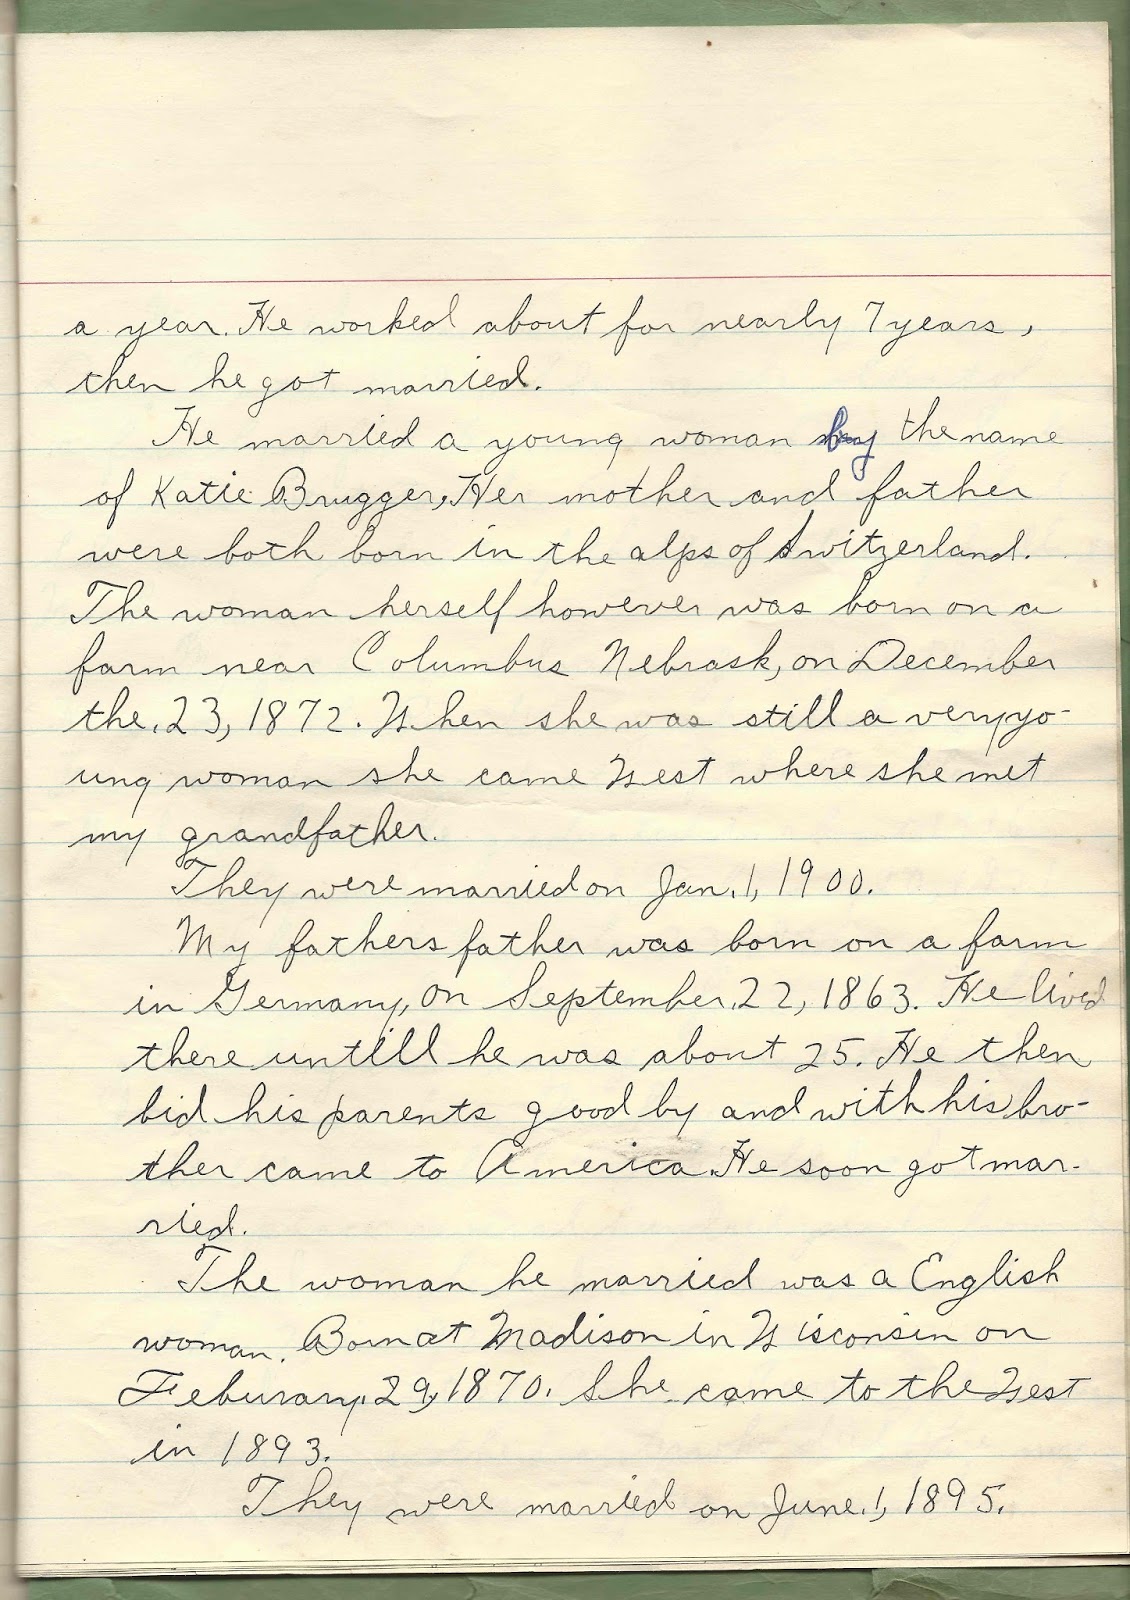 a year. He worked about for nearly 7 years,
then he got married.
He married a young woman by the name
of Katie Brugger, Her mother and father
were both born in the alps of Switzerland.
The woman herself however was born on a
farm near Columbus Nebrask, on December
the. 23, 1872. When she was still a very yo-
ung woman she came West where she met
my grandfather.
They were married on Jan. 1, 1900.
My fathers father was born on a farm
in Germany, on September. 22, 1863. He lived
there untill he was about 25. He then
bid his parents good by and with his bro-
ther came to America. He soon got mar-
ried.
The woman he married was a English
woman. Born at Madison in Wisconsin on
Feburary. 29, 1870. She came to the West
in 1893.
They were married on June. 1, 1895.